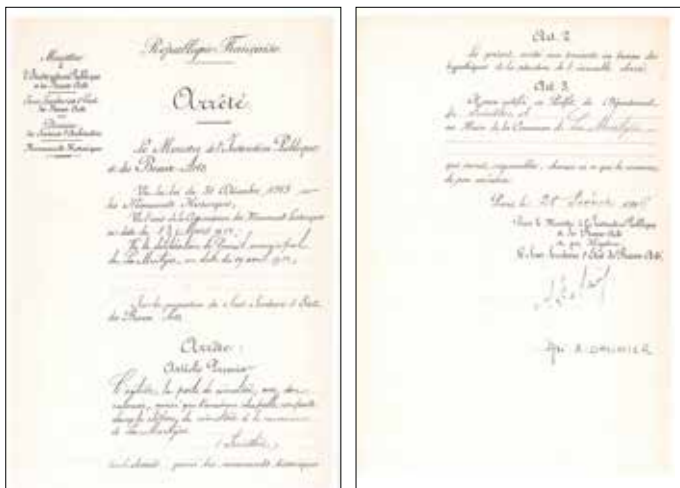 Ministère
de
l'Instruction Publique
et des Beaux-Arts
Sous-Secrétariat d'Etat
des Beaux-Arts
Monuments Historiques
République Française
Arrêté
Le Ministre de l'Instruction Publique
et des Beaux-Arts
Vu la loi du 31 Décembre 1913 sur
les Monuments Historiques,
Vu l'avis de la Commission des Monuments historiques
en date du 13 Mars
Vu la délibération du Conseil municipal
de La Martyre, en date du 19 avril
Sur la proposition du Sous-Secrétaire d'Etat
des Beaux-Arts
Arrête:
Article Premier
L'église, la porte du cimetière, avec
ainsi que l'ancienne chapelle
du cimetière de la commune
de La Martyre
(Finistère)
parmi les monuments historiques
Art. 2.
Le présent arrêté sera transcrit au bureau des
hypothèques de la situation de l'immeuble classé.
Art. 3.
Il sera notifié au Préfet du Département
du Finistère et
au Maire de la Commune de La Martyre
qui seront responsables, chacun en ce qui le concerne,
de son exécution.
Paris le
Pour le Ministre de l'Instruction Publique
et des Beaux-Arts
et par délégation
Le Sous-Secrétaire d'Etat des Beaux-Arts
DALIMIER